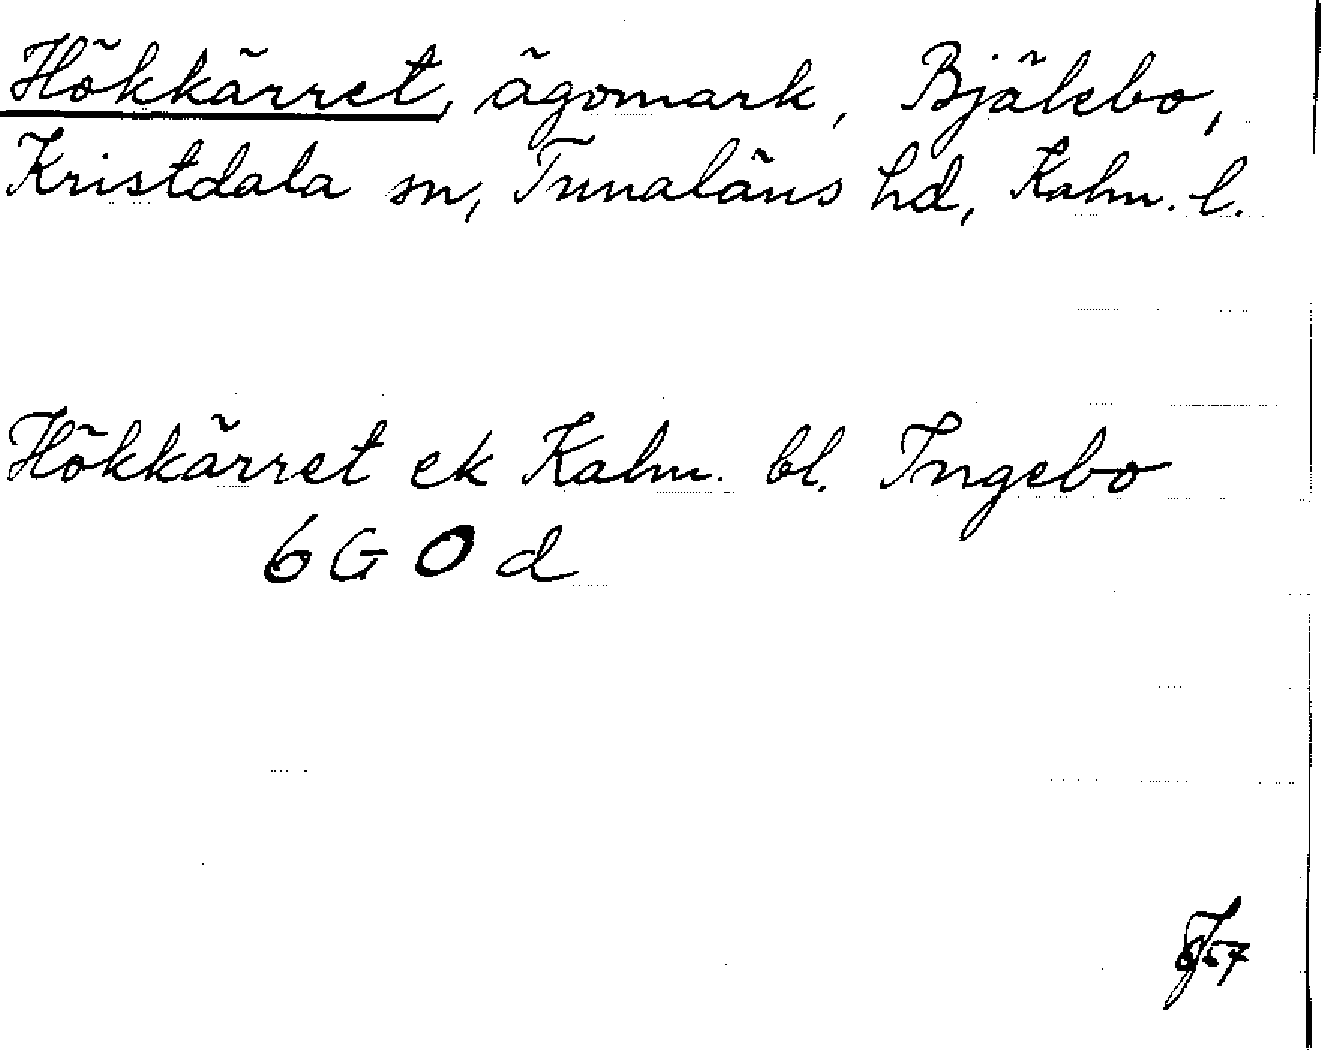 Hökkärret, ägomark, Bjälebo,
Kristdala sn, Tunaläns hd, Kalm. l.
Hökkärret ek Kalm. bl. Ingebo
6 G 0 d